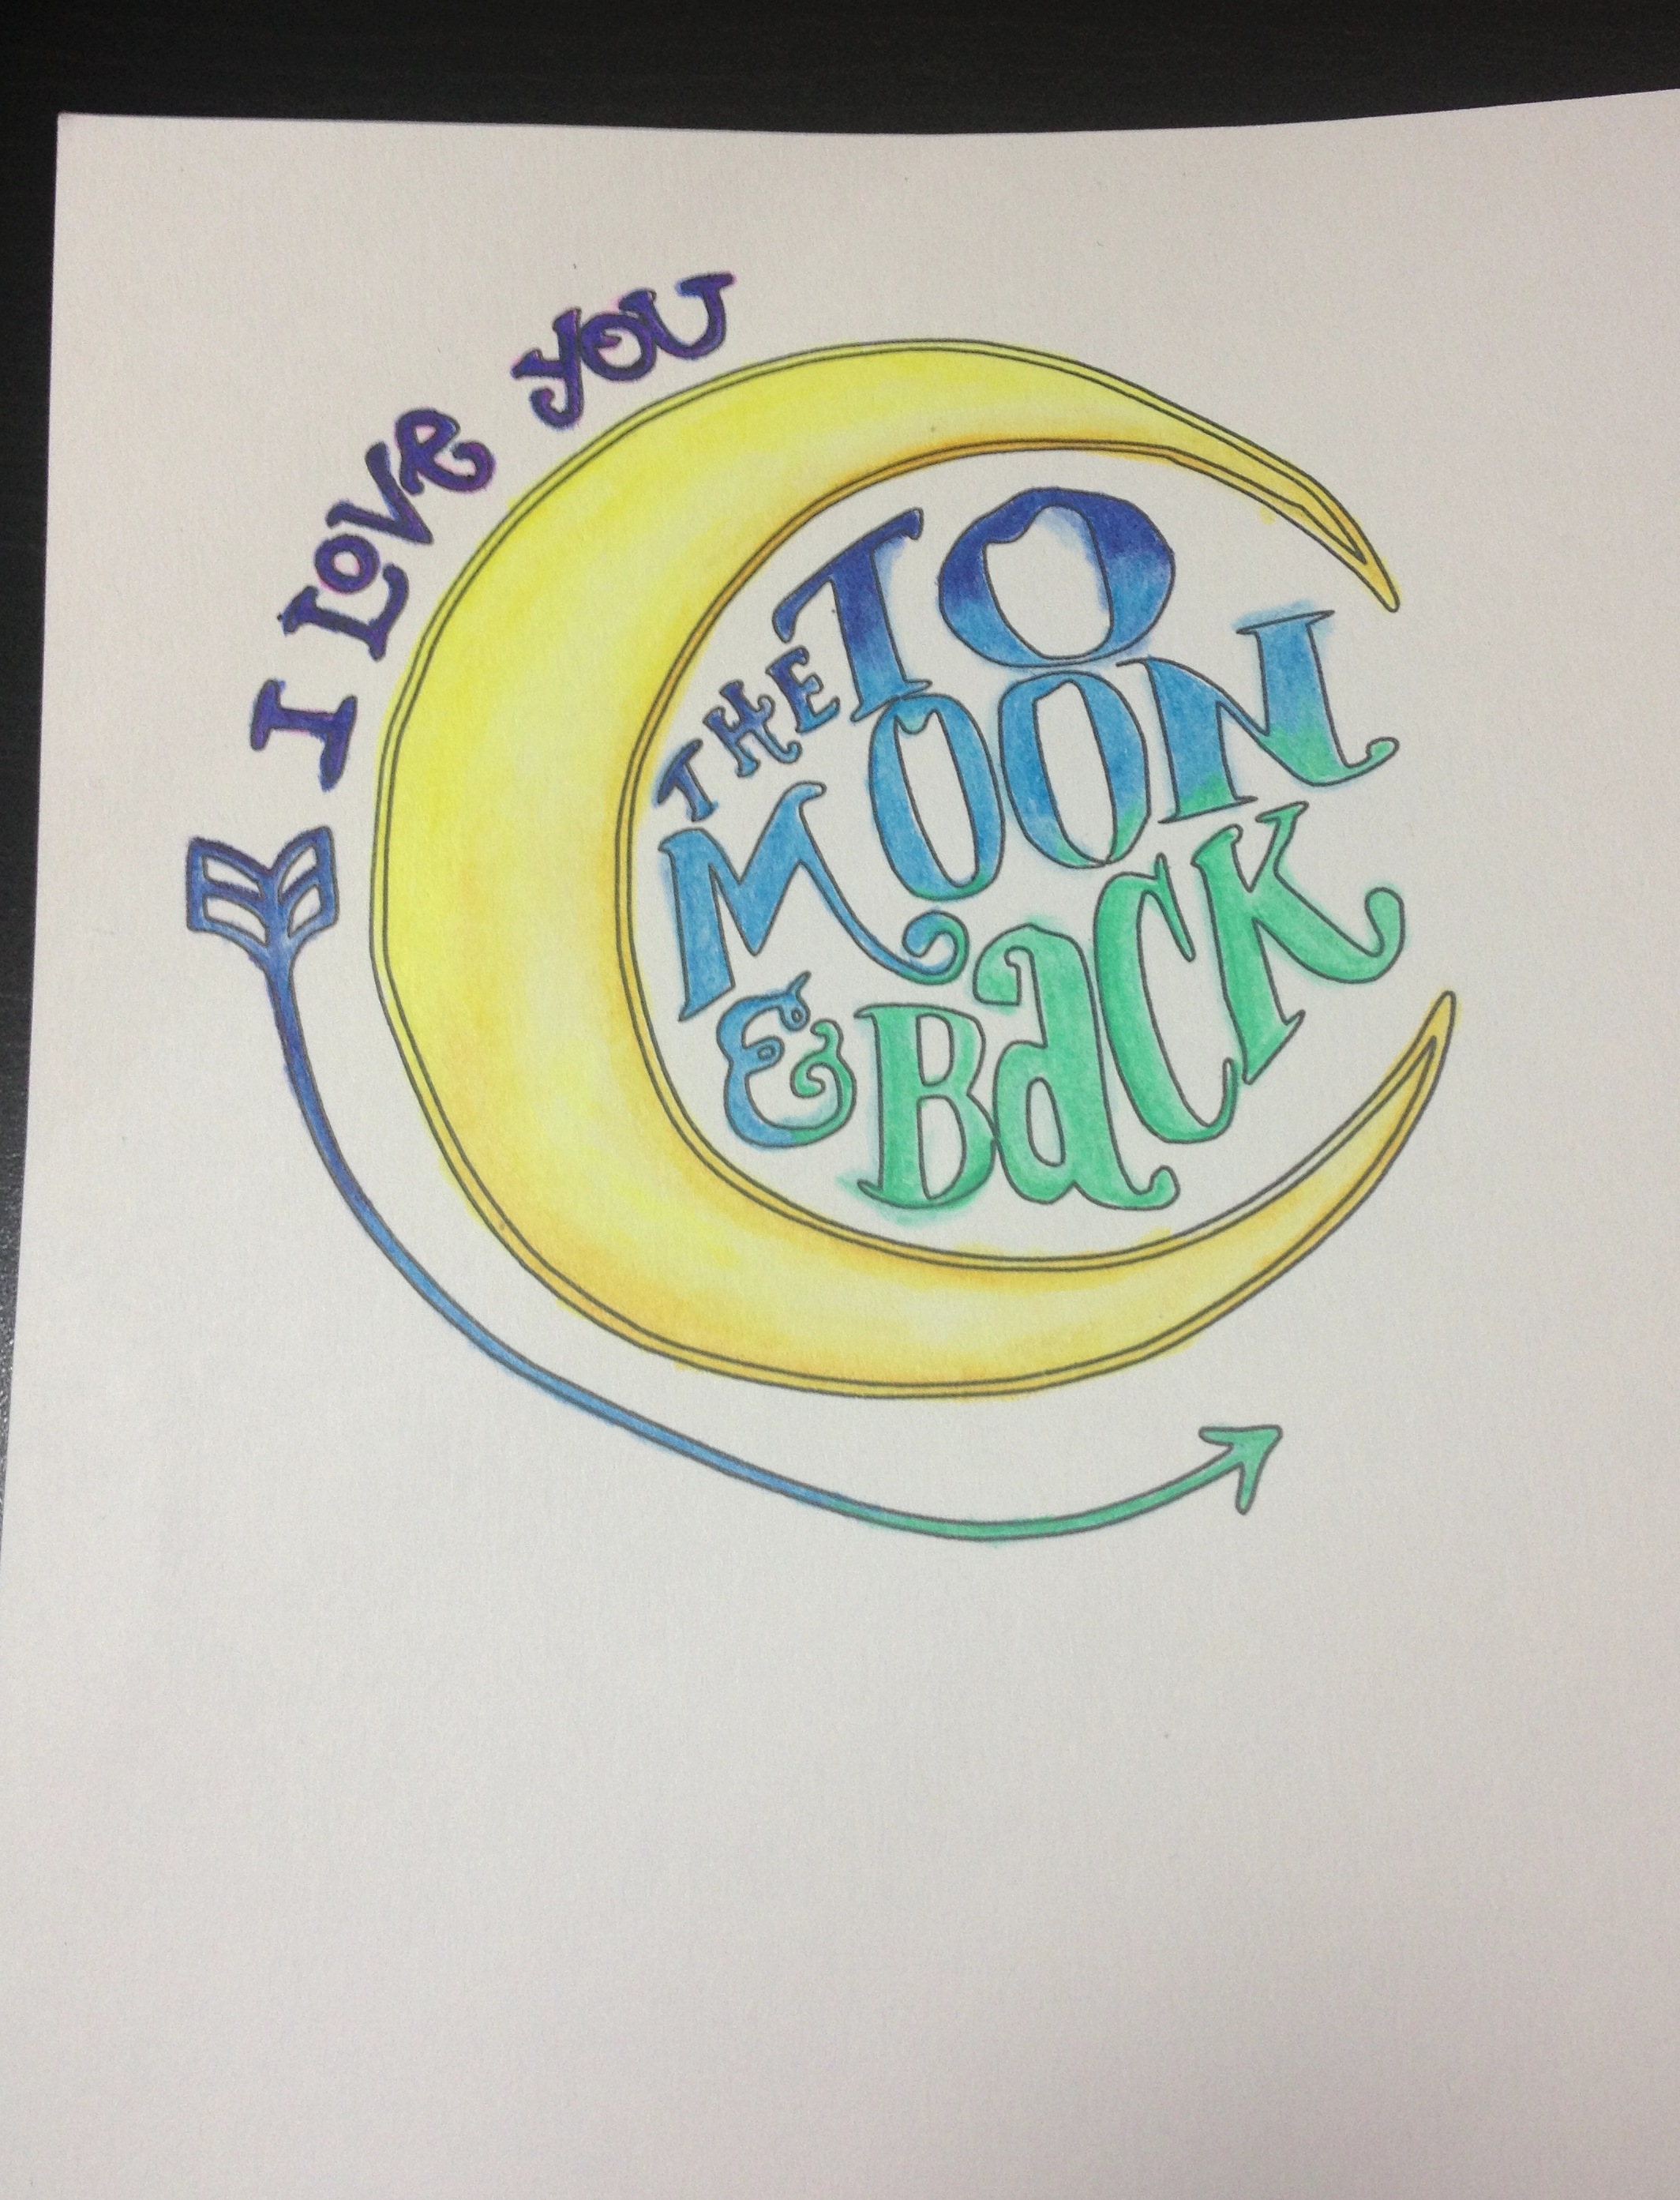 I LOVE YOU
TO
THE
MOON
& BaCK